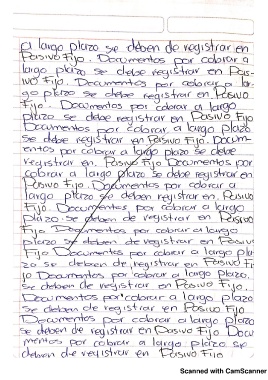 a largo plazo se deben de registrar en
Pasivo Fijo. Documentos por cobrar a
largo plazo se debe registrar en Pasi-
vo Fijo. Documentos por cobrar a lar-
go plazo se deben registrar en Pasivo
Fijo. Documentos por cobrar a largo
plazo se debe registrar en Pasivo Fijo
Documentos por cobrar a largo plazo
se debe registrar en Pasivo Fijo. Docum-
entos por cobrar a largo plazo se debe
registrar en. Pasivo Fijo Documentos por
cobrar a largo plazo se debe registrar en
Pasivo Fijo. Documentos por cobrar a
largo plazo se deben registrar en. Pasivo
Fijo. Documentos por cobrar a largo
plazo se deben de registrar en Pasivo
Fijo Documentos por cobrar a largo
plazo se deben de registrar en Pasivo
Fijo Documentos por cobrar a largo pla-
zo se deben de registrar en Pasivo Fi
jo Documentos por cobrar a largo plazo.
se deben de registrar en Pasivo Fijo.
Documentos por cobrar a largo plazo
se deben de registrar en Pasivo Fijo
Documentos por cobrar a largo plazo
se deben de registrar en Pasivo Fijo Docu
mentos por cobrar a largo plazo se
deben de registrar en Pasivo Fijo
Scanned with CamScanner